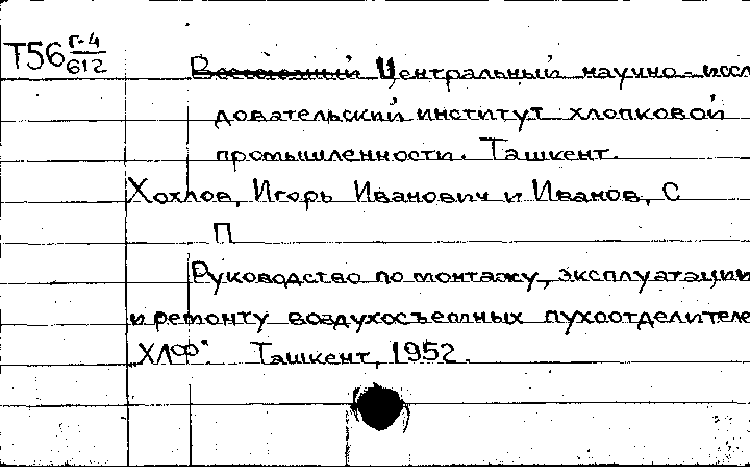 Т56 Г-4
612
Всесоюзный Центральный научно-иссл
довательский институт хлопковой
промышленности. Ташкент.
Хохлов, Игорь Иванович и Иванов, С
П
Руководство по монтажу, эксплуатации
и ремонту воздухосъемных пухоотделителе
ХЛФ". Ташкент, 1952.